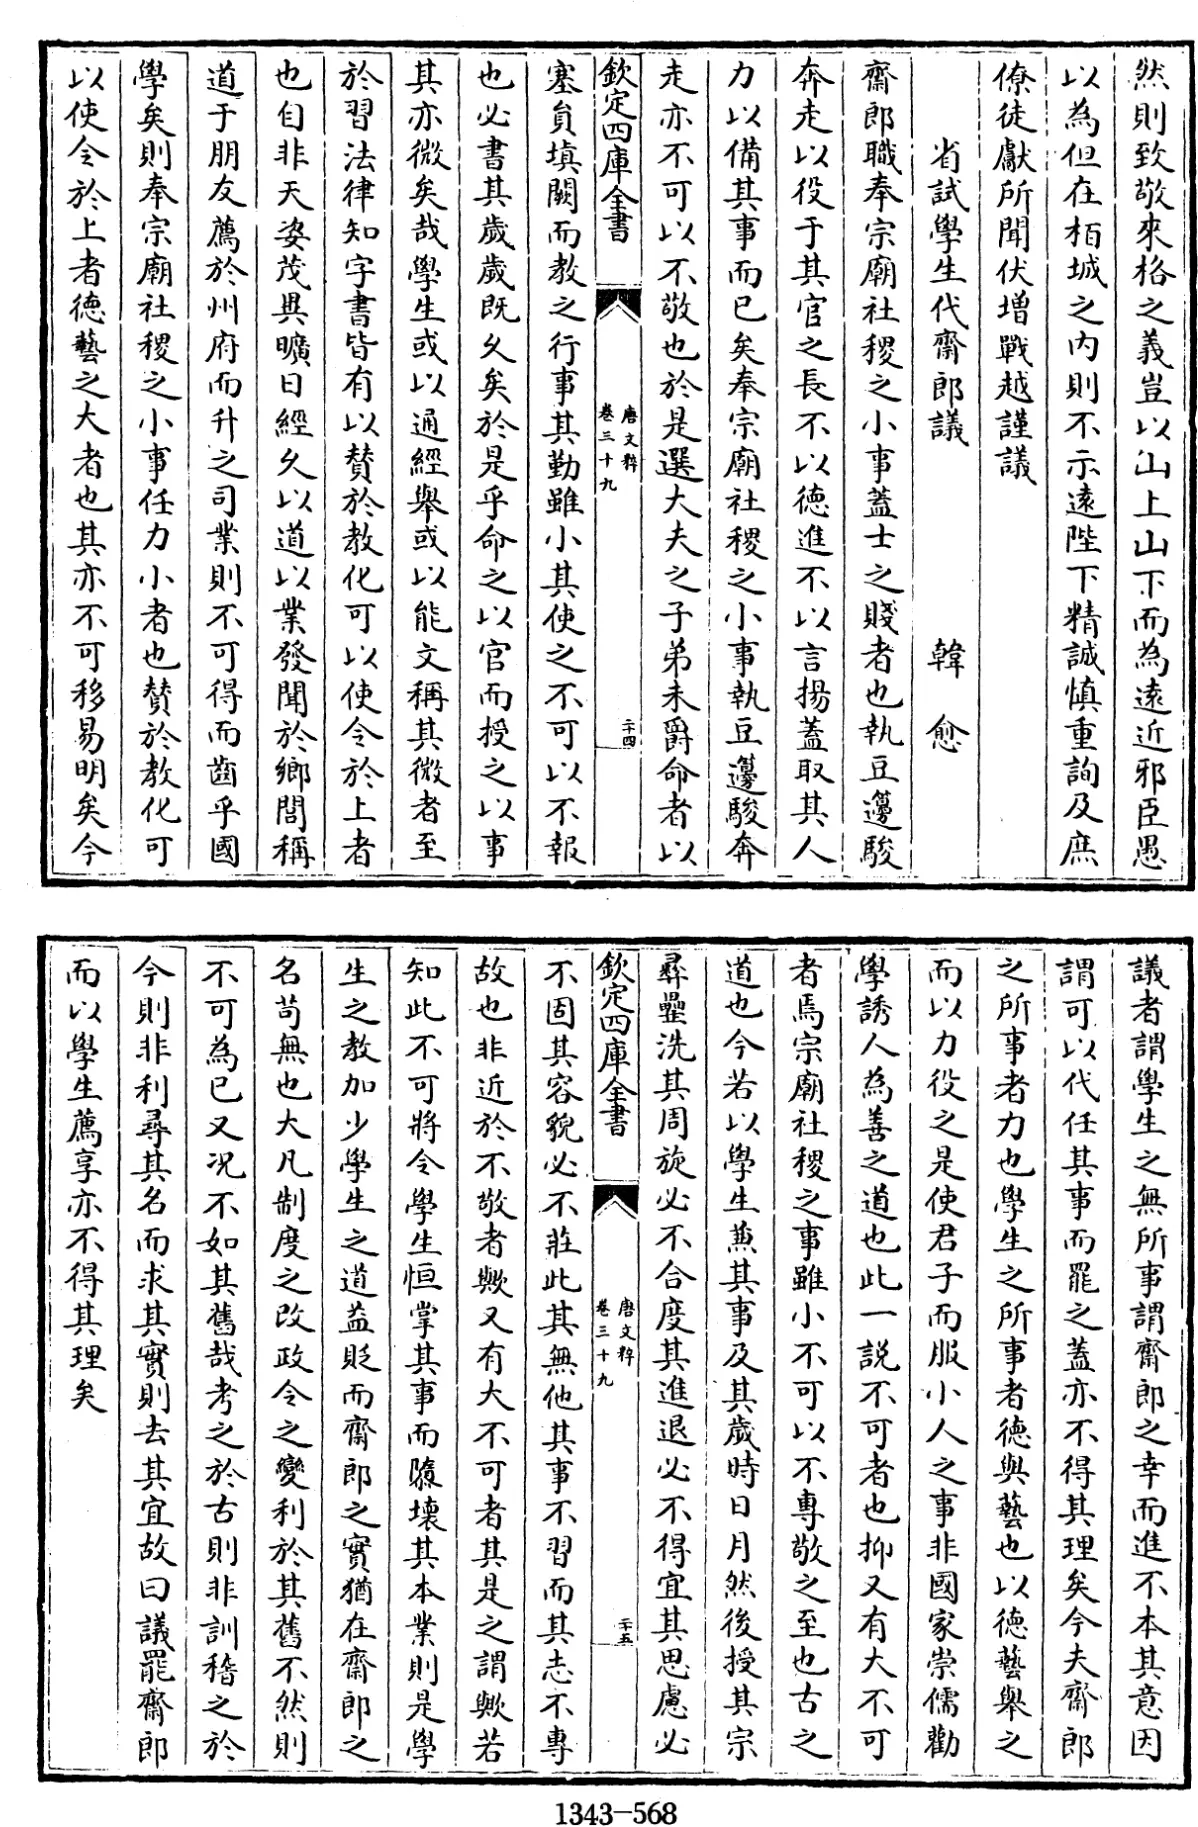 然則致敬來格之義豈以山上山下而為遠近邪臣愚
以為但在栢城之内則不示遠陛下精誠慎重詢及庶
僚徒獻所聞伏增戰越謹議
省試學生代齋郎議 韓愈
齋郎職奉宗廟社稷之小事蓋士之賤者也執豆籩駿
奔走以役于其官之長不以德進不以言揚蓋取其人
力以備其事而已矣奉宗廟社稷之小事執豆籩駿奔
走亦不可以不敬也於是選大夫之子弟未爵命者以
欽定四庫全書 唐文粹 卷三十九 二十四
塞員填闕而教之行事其勤雖小其使之不可以不報
也必書其歲歲既久矣於是乎命之以官而授之以事
其亦微矣哉學生或以通經舉或以能文稱其微者至
於習法律知字書皆有以贊於教化可以使令於上者
也自非天姿茂異曠日經久以道以業發聞於鄉閭稱
道于朋友薦於州府而升之司業則不可得而齒乎國
學矣則奉宗廟社稷之小事任力小者也贊於教化可
以使令於上者德藝之大者也其亦不可移易明矣今
議者謂學生之無所事謂齋郎之幸而進不本其意因
謂可以代任其事而罷之蓋亦不得其理矣今夫齋郎
之所事者力也學生之所事者德與藝也以德藝舉之
而以力役之是使君子而服小人之事非國家崇儒勸
學誘人為善之道也此一説不可者也抑又有大不可
者焉宗廟社稷之事雖小不可以不專敬之至也古之
道也今若以學生兼其事及其歲時日月然後授其宗
彞罍洗其周旋必不合度其進退必不得宜其思慮必
欽定四庫全書 唐文粹 卷三十九 二十五
不固其容貌必不莊此其無他其事不習而其志不專
故也非近於不敬者歟又有大不可者其是之謂歟若
知此不可將令學生恒掌其事而隳壞其本業則是學
生之教加少學生之道益貶而齋郎之實猶在齋郎之
名苟無也大凡制度之改政令之變利於其舊不然則
不可為已又况不如其舊哉考之於古則非訓稽之於
今則非利尋其名而求其實則去其宜故曰議罷齋郎
而以學生薦享亦不得其理矣
1343-568